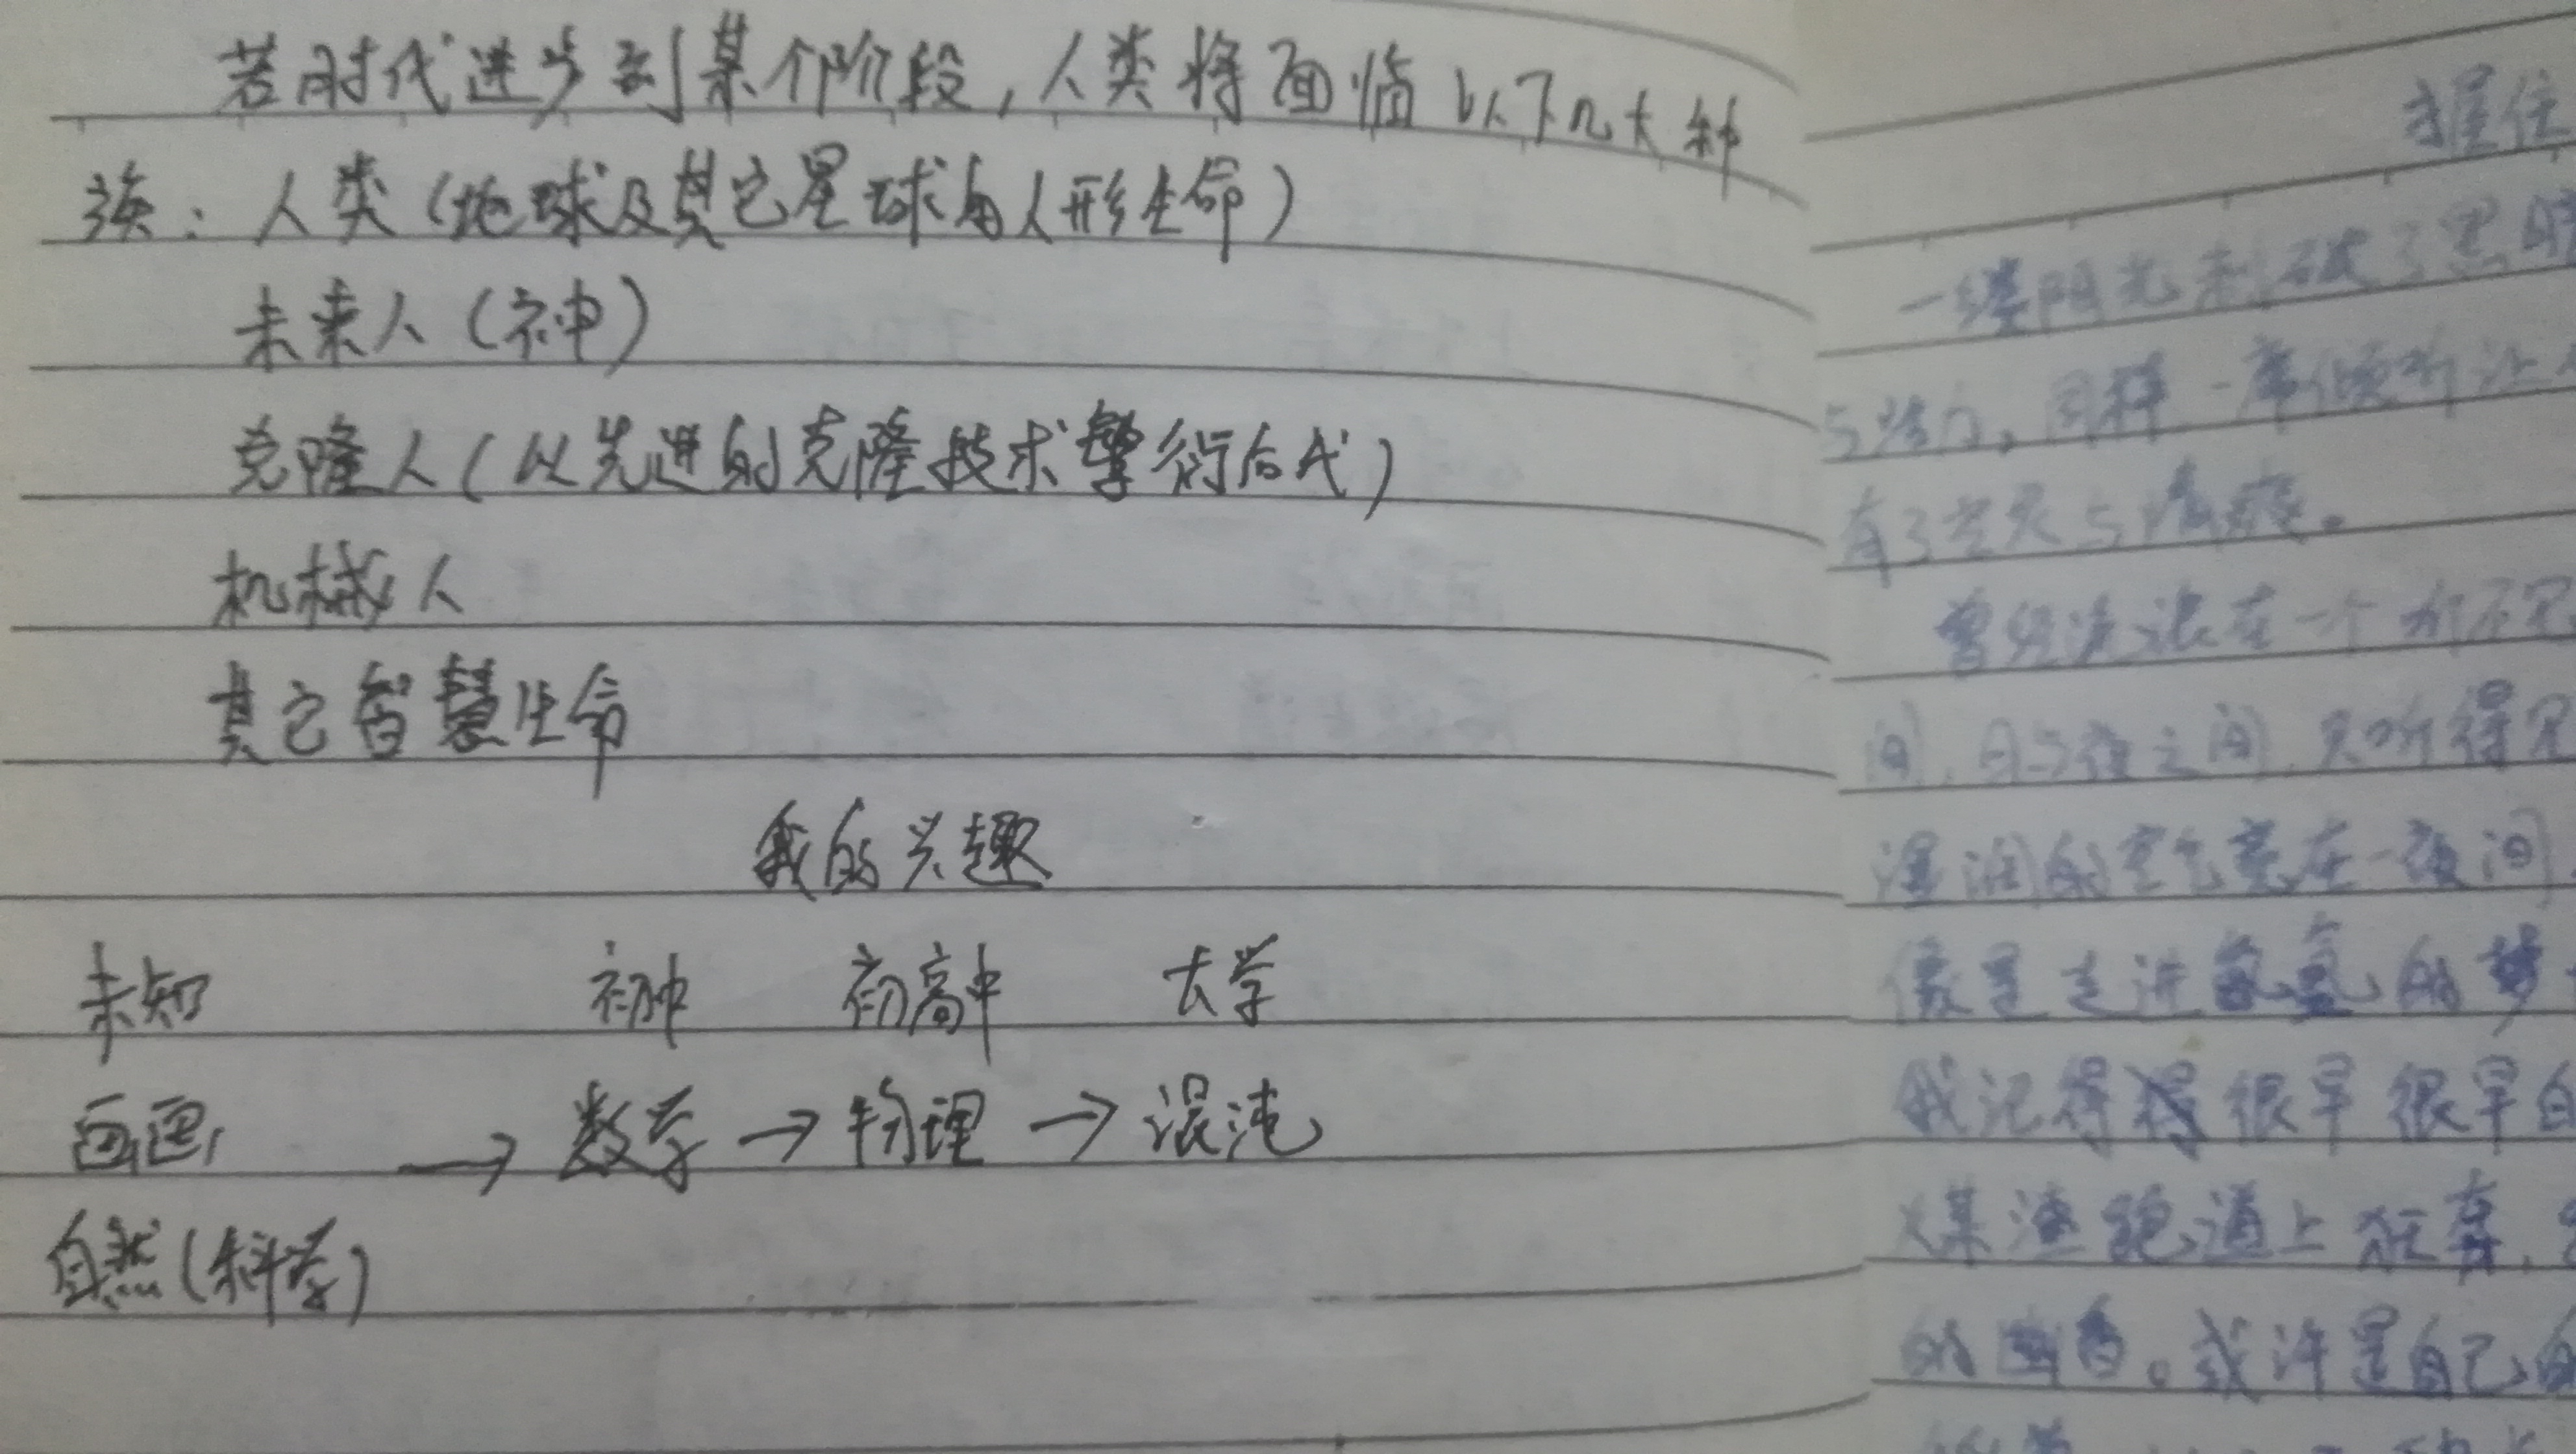 若时代进步到某个阶段,人类将面临以下几大种
族:人类(地球及其它星球的人形生命)
未来人(神)
克隆人(以先进的克隆技术繁衍后代)
机械人
其它智慧生命
我的兴趣
未知 初中 初高中 大学
画画 → 数学 → 物理 → 混沌
自然(科学)
握住
一缕阳光刺破了黑暗
与活力。同样一席倾听让
有了空灵与清爽。
曾经沉浸在一个
间,日与夜之间,只听得见
湿润的空气竟在一夜间
像是走进氤氲的梦
我记得很早很早的
煤渣跑道上狂奔,
的幽香。或许是自己